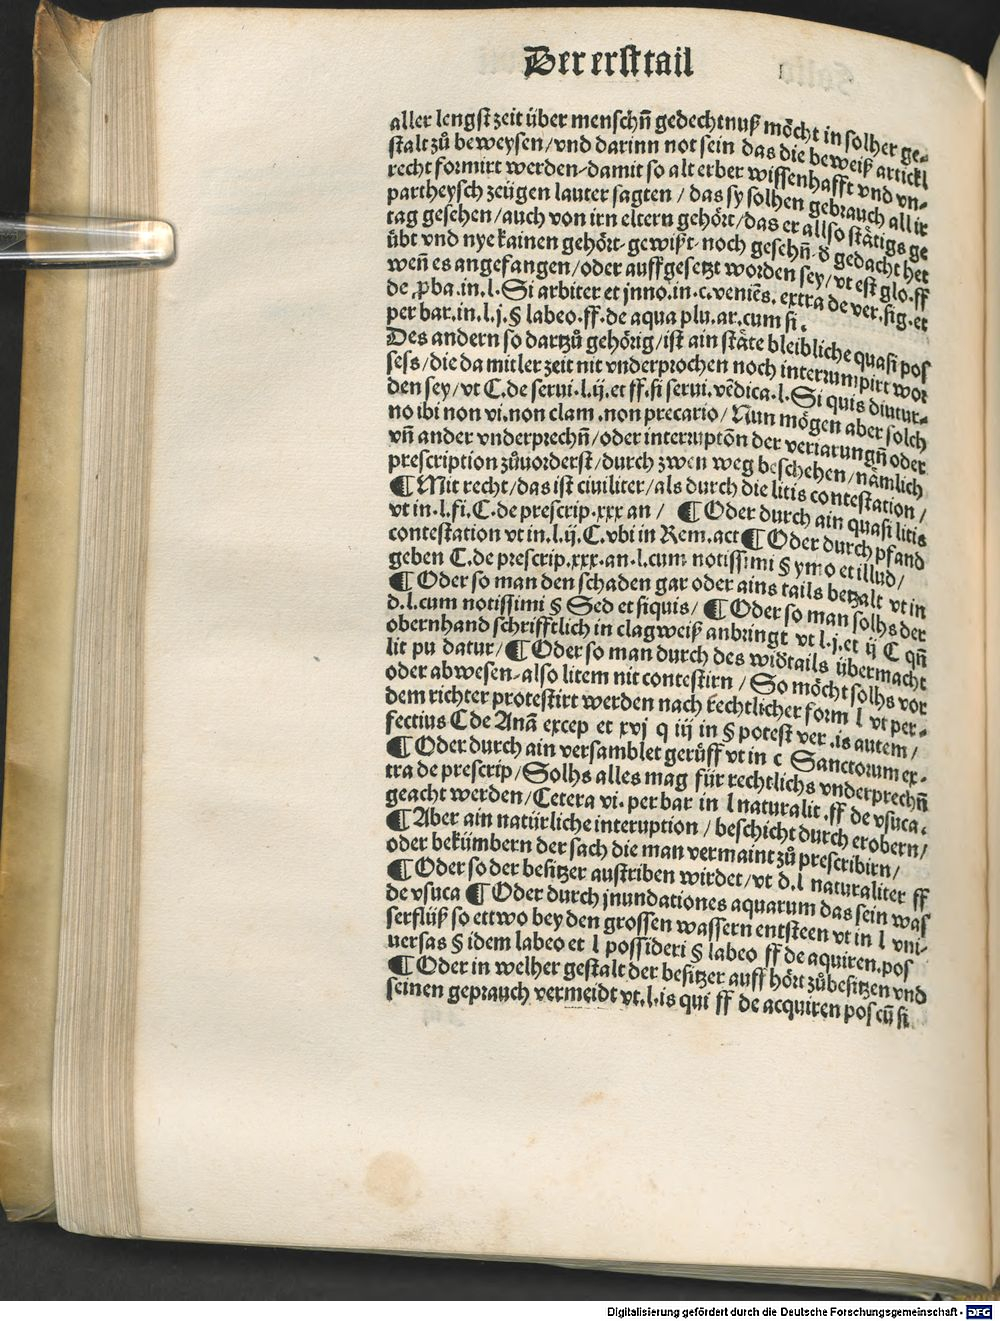 Der erst tail
aller lengst zeit über menschn̄ gedechtnuß möcht in solher ge⸗
stalt zů beweysen/vnd darinn not sein das die beweiß artickl
recht formirt werden⸗damit so alt erber wissenhafft vnd vn⸗
partheysch zeügen lauter sagten / das sy solhen gebrauch all ir
tag gesehen/auch von irn eltern gehört/das er allso stätigs ge
übt vnd nye kainen gehört⸗gewißt⸗noch gesehn̄⸗d̄ gedacht het
weñ es angefangen/oder auffgesetzt worden sey/vt est glo.ff
de ꝓba.in.l.Si arbiter et jnno.in.c.veniēs.extra de ver.sig.et
per bar.in.l.j.§ labeo.ff.de aqua plu.ar.cum si.
Des andern so dartzů gehörig/ist ain stäte bleibliche quasi pos
sess/die da mitler zeit nit vnderprochen noch interrumpirt wor
den sey/vt C.de serui.l.ij.et ff.si serui.vēdica.l.Si quis diutur⸗
no ibi non vi.non clam.non precario/Nun mögen aber solch
vn̄ ander vnderprechn̄/oder interruptōn der veriarungn̄ oder
prescription zůuorderst/durch zwen weg beschehen/nämlich
¶ Mit recht/das ist ciuiliter/als durch die litis contestation/
vt in.l.fi.C.de prescrip.xxx an/ ¶ Oder durch ain quasi litis
contestation vt in.l.ij.C.vbi in Rem.act ¶ Oder durch pfand
geben C.de prescrip.xxx.an.l.cum notissimi § ymo et illud/
¶ Oder so man den schaden gar oder ains tails betzalt vt in
d.l.cum notissimi § Sed et siquis/ ¶ Oder so man solhs der
obernhand schrifftlich in clagweiß anbringt vt l.j.et ij C qn̄
lit pu datur/ ¶ Oder so man durch des widtails übermacht
oder abwesen⸗also litem nit contestirn/So möcht solhs vor
dem richter protestirt werden nach rechtlicher form l vt per⸗
fectius C de Anā excep et xvj q iij in § potest ver.is autem/
¶ Oder durch ain versamblet gerüff vt in c Sanctorum ex⸗
tra de prescrip/Solhs alles mag für rechtlichs vnderprechn̄
geacht werden/Cetera vi.per bar in l naturalit.ff de vsuca.
¶ Aber ain natürliche interuption/beschicht durch erobern/
oder bekümbern der sach die man vermaint zů prescribirn/
¶ Oder so der besitzer austriben wirdet/vt d.l naturaliter ff
de vsuca ¶ Oder durch jnundationes aquarum das sein was
serflüß so ettwo bey den grossen wassern entsteen vt in l vni⸗
uersas § idem labeo et l possideri § labeo ff de aquiren.pos
¶ Oder in welher gestalt der besitzer auff hört zůbesitzen vnd
seinen geprauch vermeidt vt.l.is qui ff de acquiren pos cū si
Digitalisierung gefördert durch die Deutsche Forschungsgemeinschaft - DFG